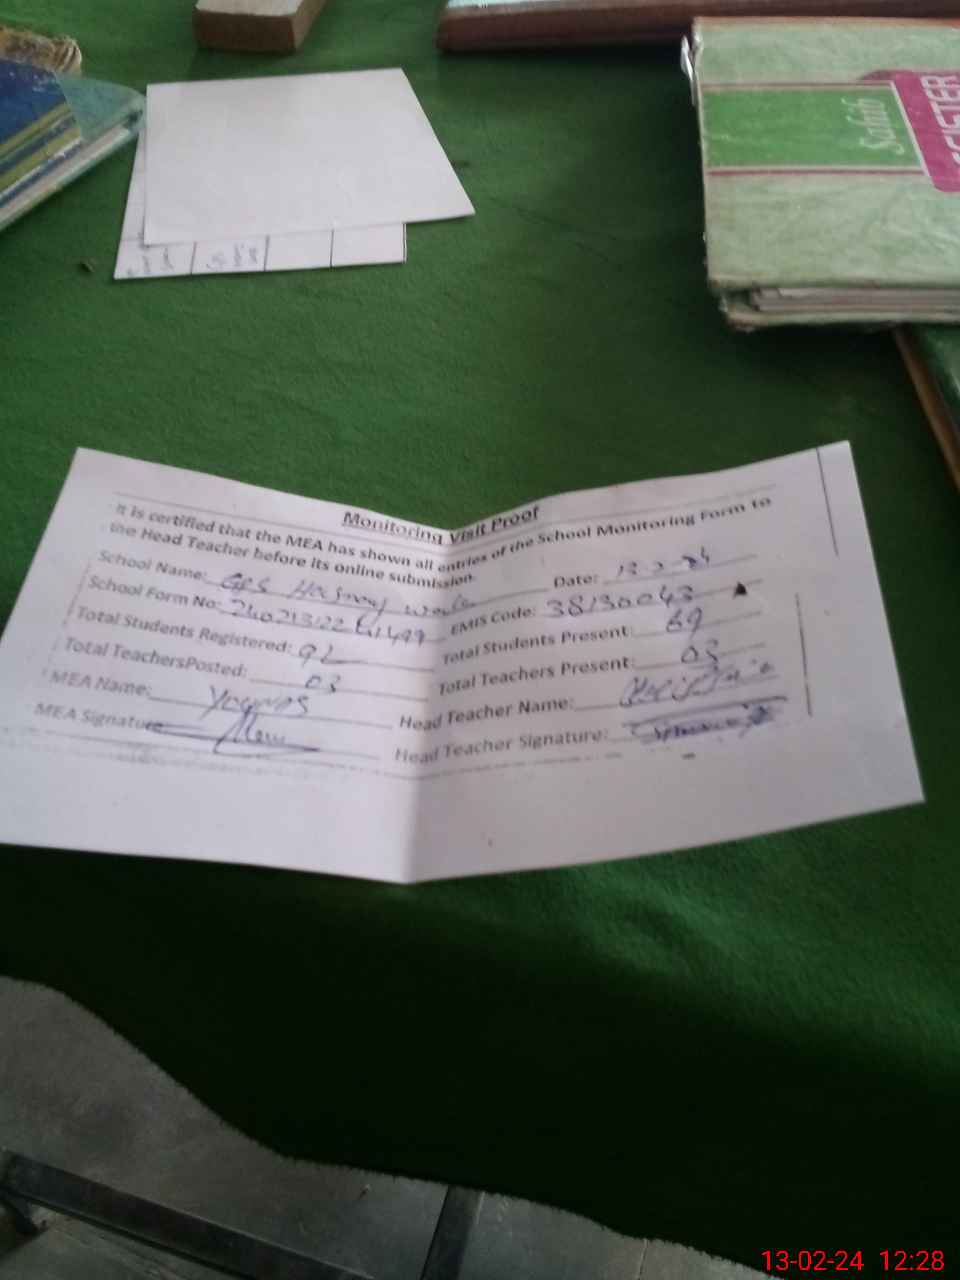 Sahib
REGISTER
Monitoring Visit Proof
It is certified that the MEA has shown all entries of the School Monitoring Form to
the Head Teacher before its online submission.
School Name: GPS Date: 13-2-24
School Form No: EMIS Code: 38130043
Total Students Registered: 92 Total Students Present: 69
Total TeachersPosted: 03 Total Teachers Present: 03
MEA Name: Head Teacher Name:
MEA Signature Head Teacher Signature:
13-02-24 12:28